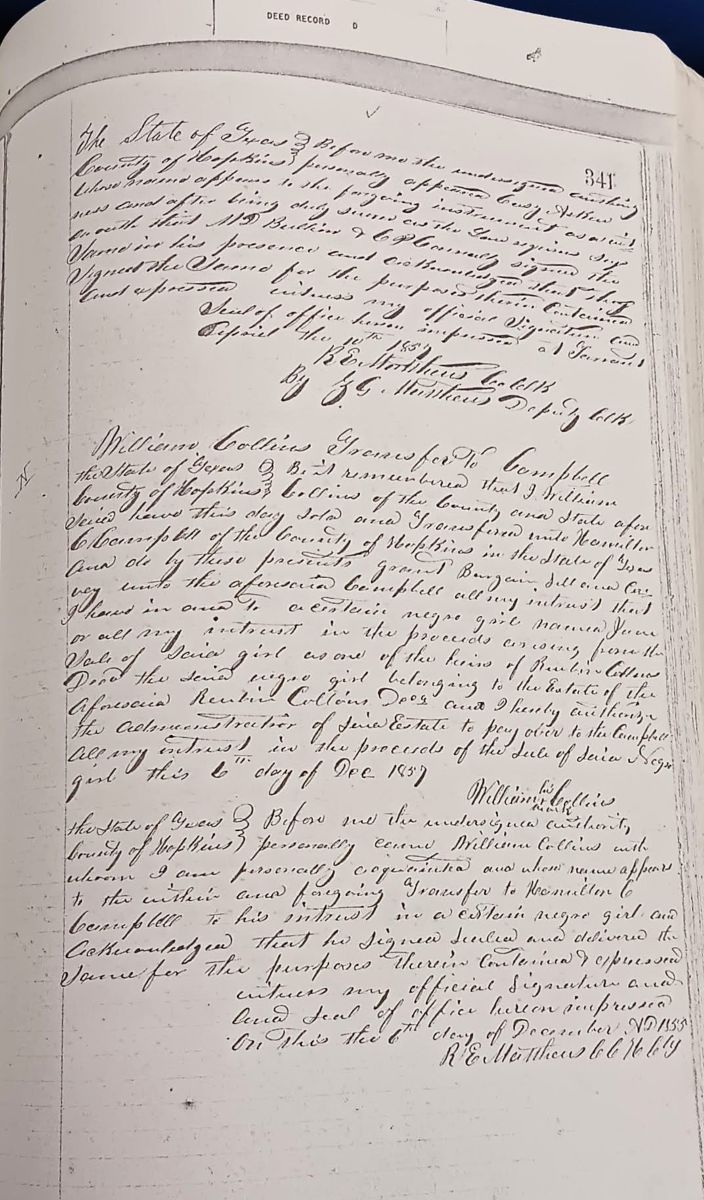 DEED RECORD D
341
The State of Texas } Before me the undersigned authority
County of Hopkins } personally appeared
whose name appears to the forgoing instrument as a wit
ness and after being duly sworn as the Law requires says
on oath that M D & C P Connally signed the
Same in his presence and acknowledged that they
Signed the Same for the purposes therein Contained
and expressed witness my official Signature and
Seal of office hereon impressed at Tarrant
the 10th 1857
R E Matthews Co Clk
By Z G Matthews Deputy Clk
William Collins Transfer To Campbell
the State of Texas } Be it remembered that I William
County of Hopkins } Collins of the County and State afore
Said have this day sold and Transfered unto Hamilton
C Campbell of the County of Hopkins in the State of Texas
and do by these presents grant Bargain Sell and Con
vey unto the aforesaid Campbell all my intrust that
I have in and to a certain negro girl named Jane
or all my intrust in the proceeds arising from the
Sale of Said girl as one of the heirs of Reubin Collins
Decd the Said negro girl belonging to the Estate of the
aforesaid Reubin Collins Decd and I hereby authorize
the administrator of Said Estate to pay over to the Campbell
all my intrust in the proceeds of the Sale of Said Negro
girl this 6th day of Dec 1857
William his mark Collins
the State of Texas } Before me the undersigned authority
County of Hopkins } personally came William Collins with
whom I am personally acquainted and whose name appears
to the within and foregoing Transfer to Hamilton C
Campbell to his intrust in a certain negro girl and
acknowledged that he Signed Sealed and delivered the
Same for the purposes therein Contained & expressed
witness my official Signature and
and Seal of office hereon impressed
on this the 6th day of December AD 1855
R E Matthews C C H Cty
N